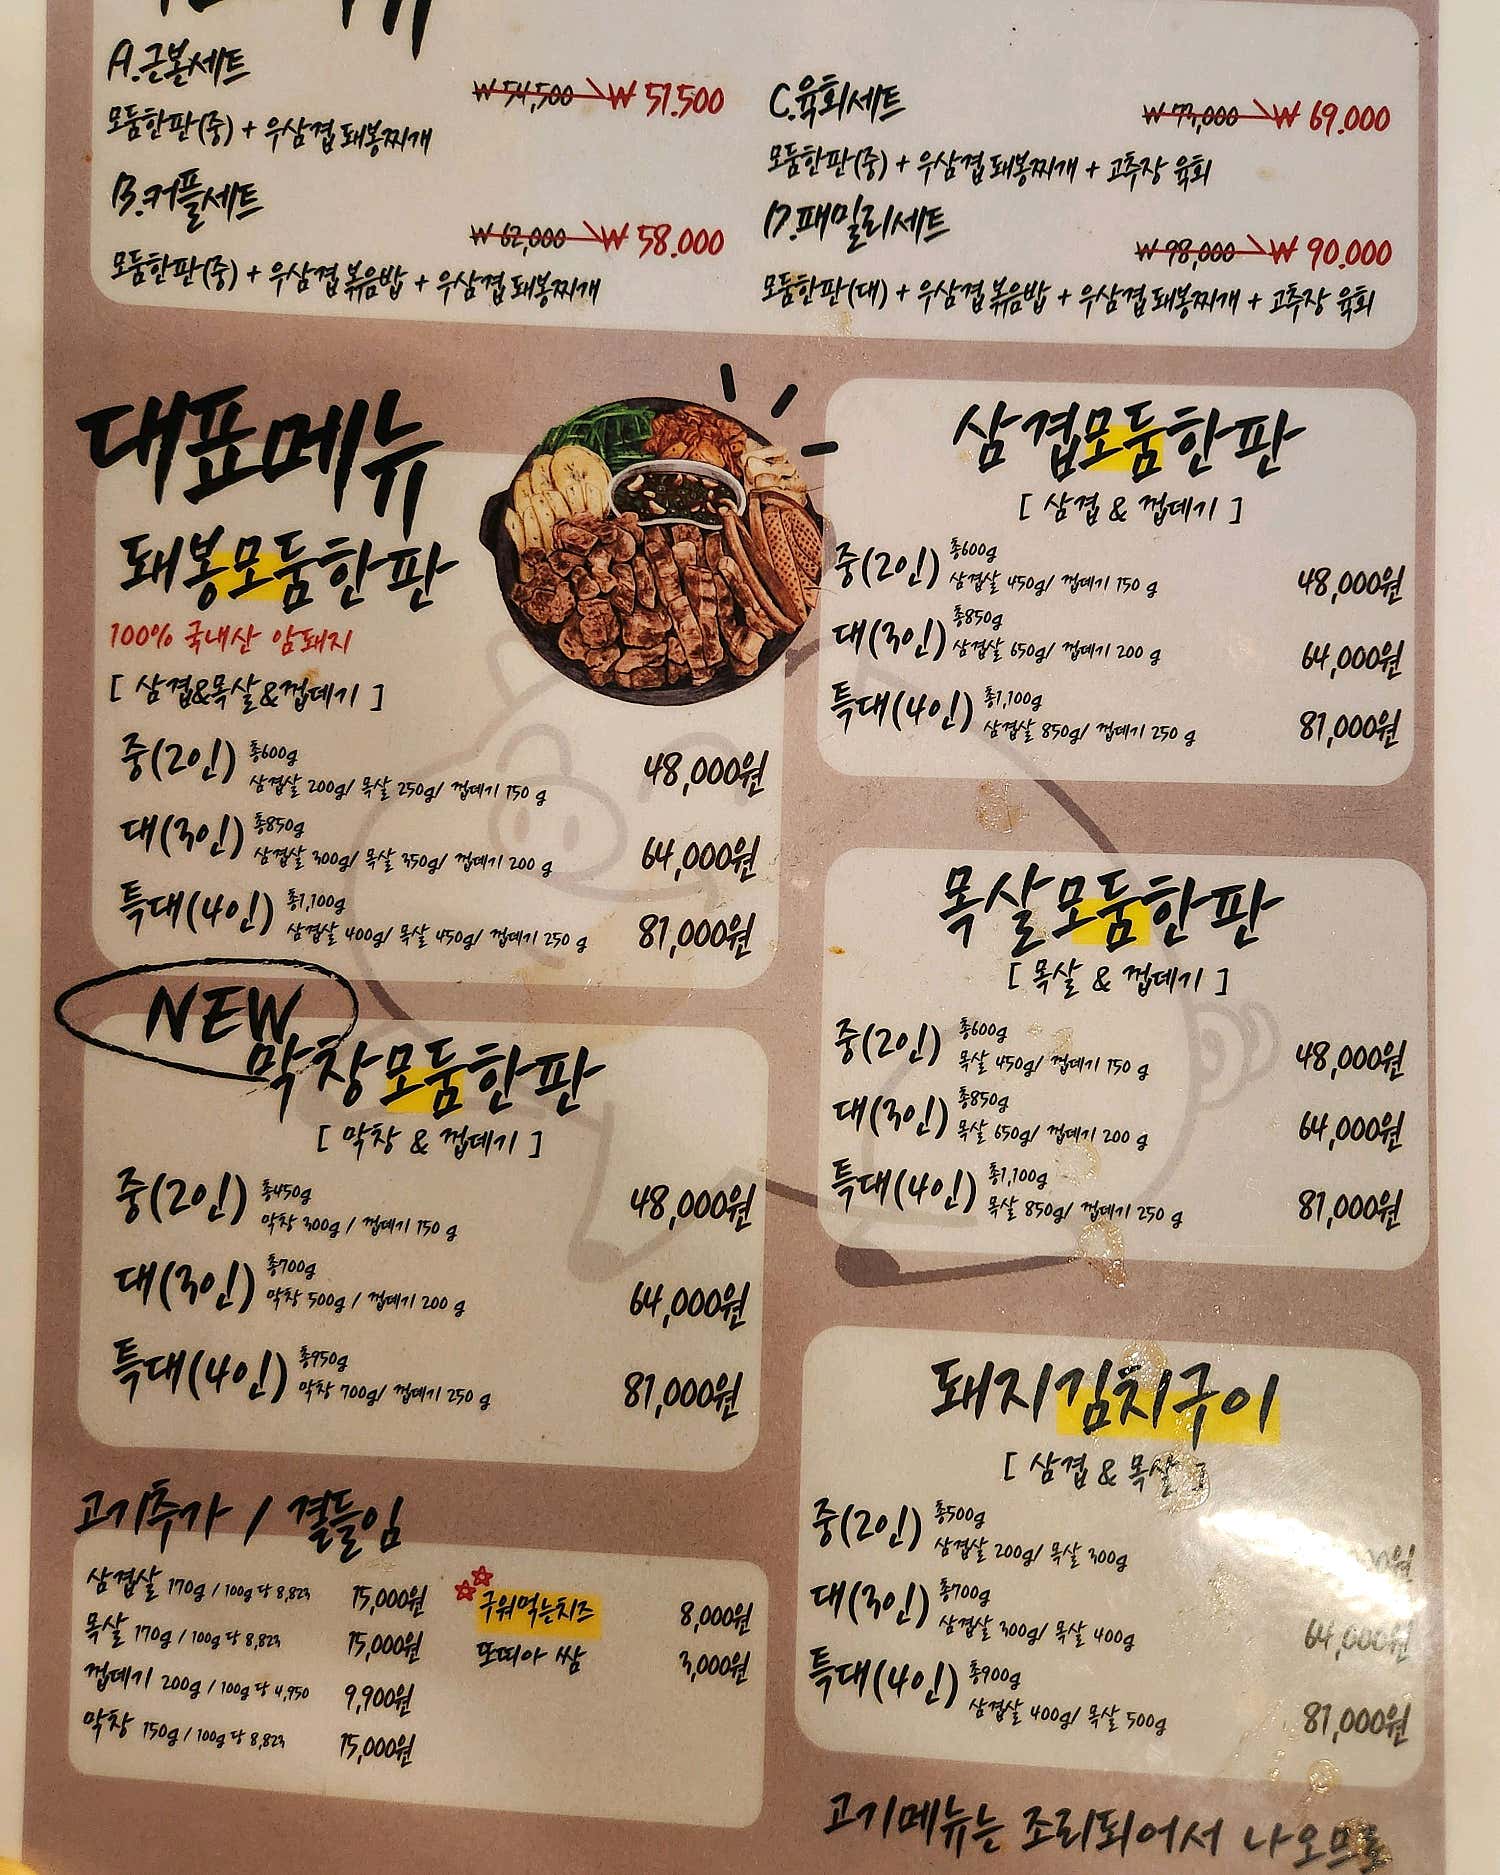 A.근본세트
₩ 54,500 → ₩ 51.500
모둠한판(중) + 우삼겹돼봉찌개
B.커플세트
₩ 62,000 → ₩ 58.000
모둠한판(중) + 우삼겹볶음밥 + 우삼겹돼봉찌개
C.육회세트
₩ 73,000 → ₩ 69.000
모둠한판(중) + 우삼겹돼봉찌개 + 고추장 육회
D.패밀리세트
₩ 98,000 → ₩ 90.000
모둠한판(대) + 우삼겹볶음밥 + 우삼겹돼봉찌개 + 고추장 육회
대표메뉴
돼봉모둠한판
100% 국내산 암돼지
[ 삼겹&목살&껍데기 ]
중(2인) 총600g
삼겹살 200g/ 목살 250g/ 껍데기 150 g
48,000원
대(3인) 총850g
삼겹살 300g/ 목살 350g/ 껍데기 200 g
64,000원
특대(4인) 총1,100g
삼겹살 400g/ 목살 450g/ 껍데기 250 g
81,000원
NEW
막창모둠한판
[ 막창 & 껍데기 ]
중(2인) 총450g
막창 300g / 껍데기 150 g
48,000원
대(3인) 총700g
막창 500g / 껍데기 200 g
64,000원
특대(4인) 총950g
막창 700g/ 껍데기 250 g
81,000원
고기추가 / 곁들임
삼겹살 170g / 100g 당 8,823 15,000원
목살 170g / 100g 당 8,823 15,000원
껍데기 200g / 100g 당 4,950 9,900원
막창 150g / 100g 당 8,823 15,000원
구워먹는치즈 8,000원
또띠아 쌈 3,000원
삼겹모둠한판
[ 삼겹 & 껍데기 ]
중(2인) 총600g
삼겹살 450g/ 껍데기 150 g
48,000원
대(3인) 총850g
삼겹살 650g/ 껍데기 200 g
64,000원
특대(4인) 총1,100g
삼겹살 850g/ 껍데기 250 g
81,000원
목살모둠한판
[ 목살 & 껍데기 ]
중(2인) 총600g
목살 450g/ 껍데기 150 g
48,000원
대(3인) 총850g
목살 650g/ 껍데기 200 g
64,000원
특대(4인) 총1,100g
목살 850g/ 껍데기 250 g
81,000원
돼지김치구이
[ 삼겹 & 목살 ]
중(2인) 총500g
삼겹살 200g/ 목살 300g
대(3인) 총700g
삼겹살 300g/ 목살 400g
64,000원
특대(4인) 총900g
삼겹살 400g/ 목살 500g
81,000원
고기메뉴는 조리되어서